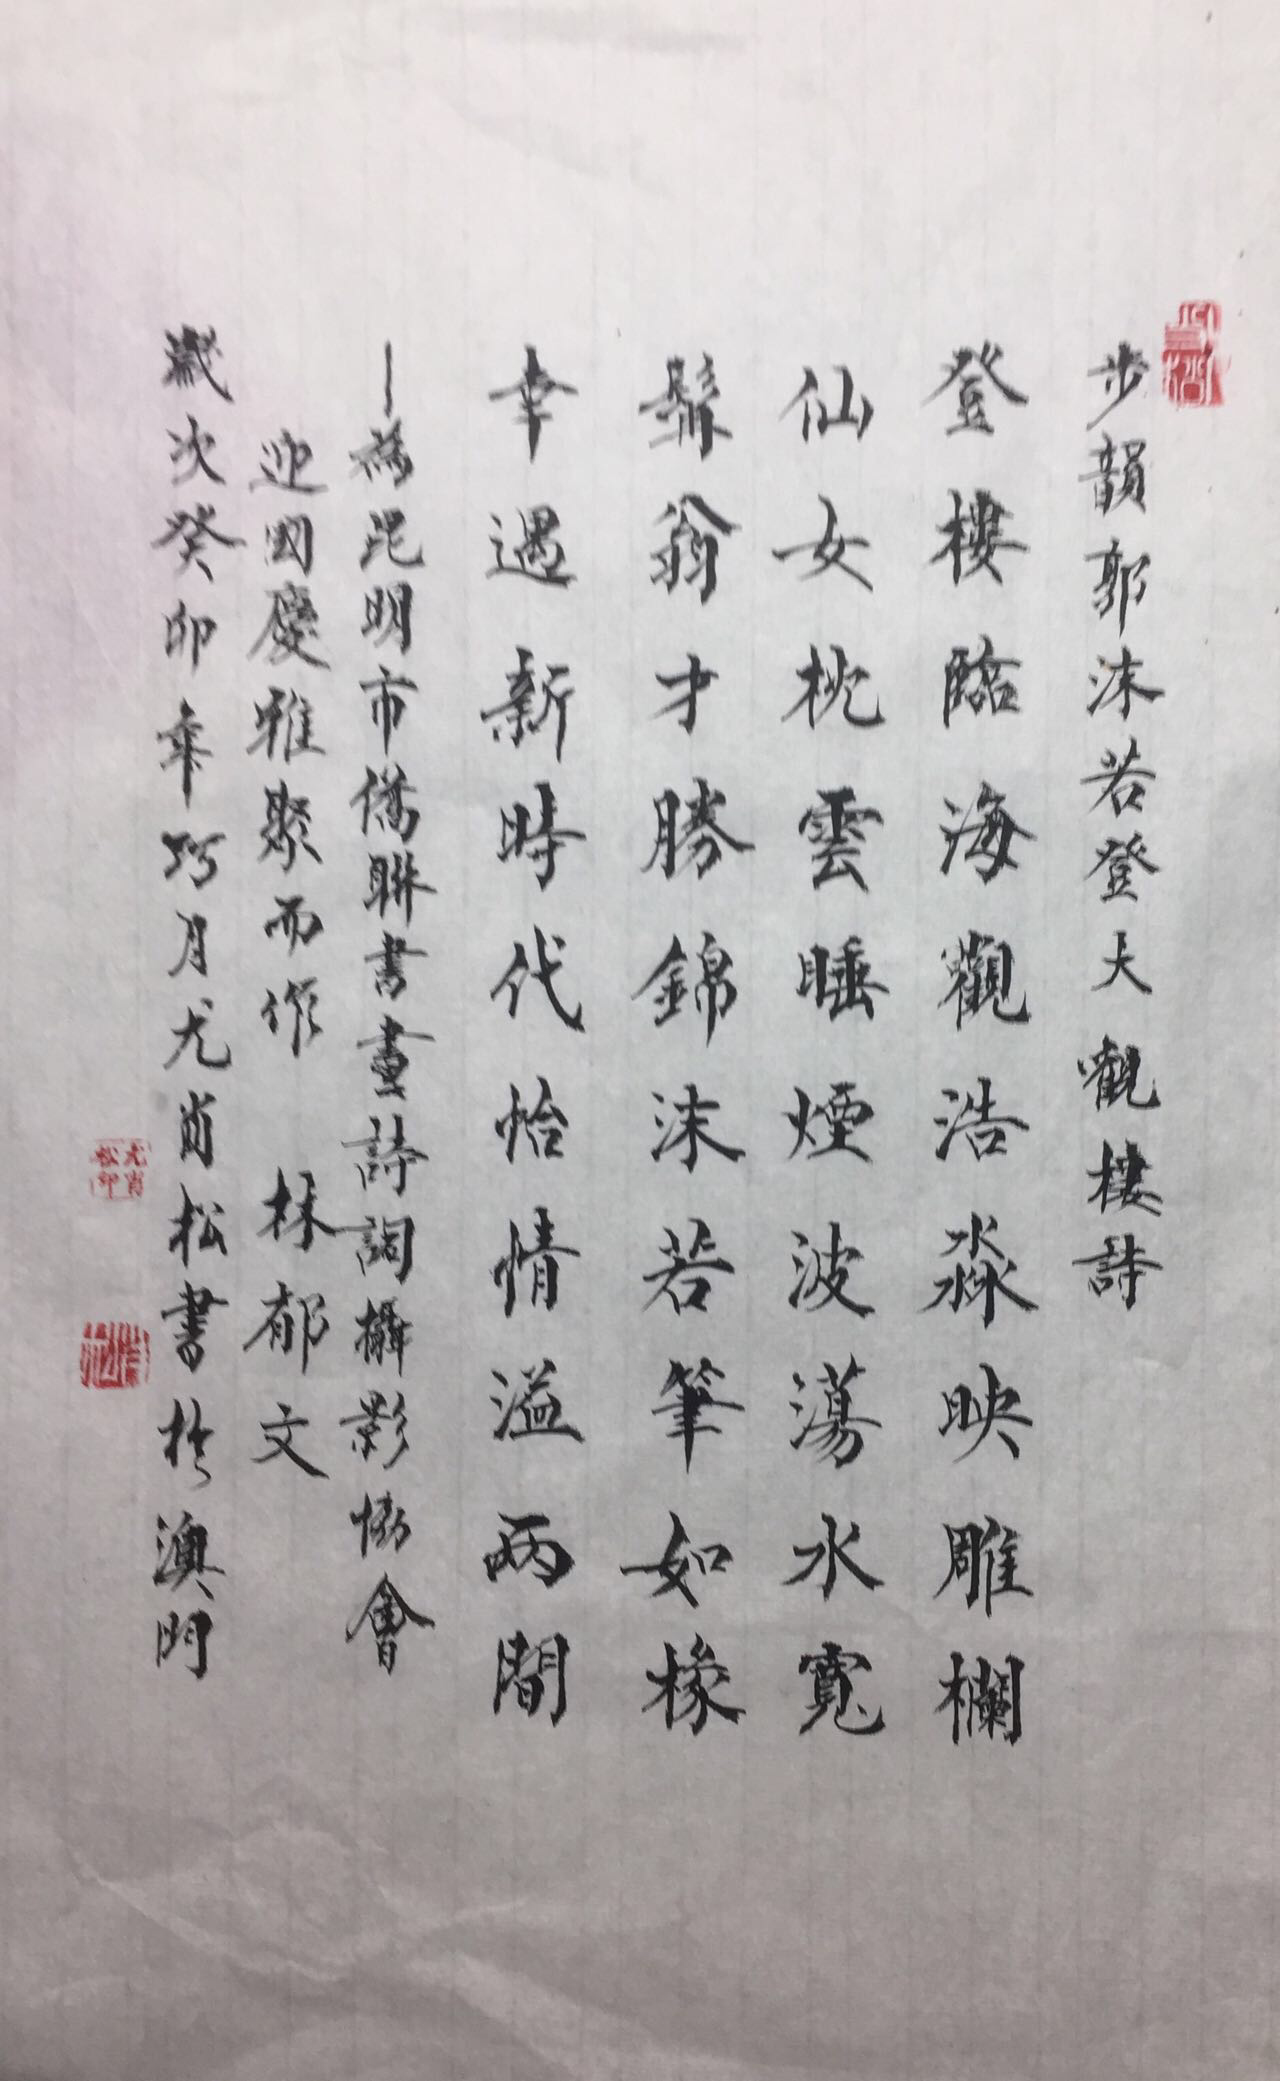 步韻郭沫若登大觀樓詩
登樓臨海觀浩淼映雕欄
仙女枕雲睡煙波蕩水寬
髯翁才勝錦沫若筆如椽
幸遇新時代怡情溢兩間
—為昆明市僑聯書畫詩詞攝影協會
迎國慶雅聚而作 林郁文
歲次癸卯年巧月尤肖松書於澳門
尤肖松印